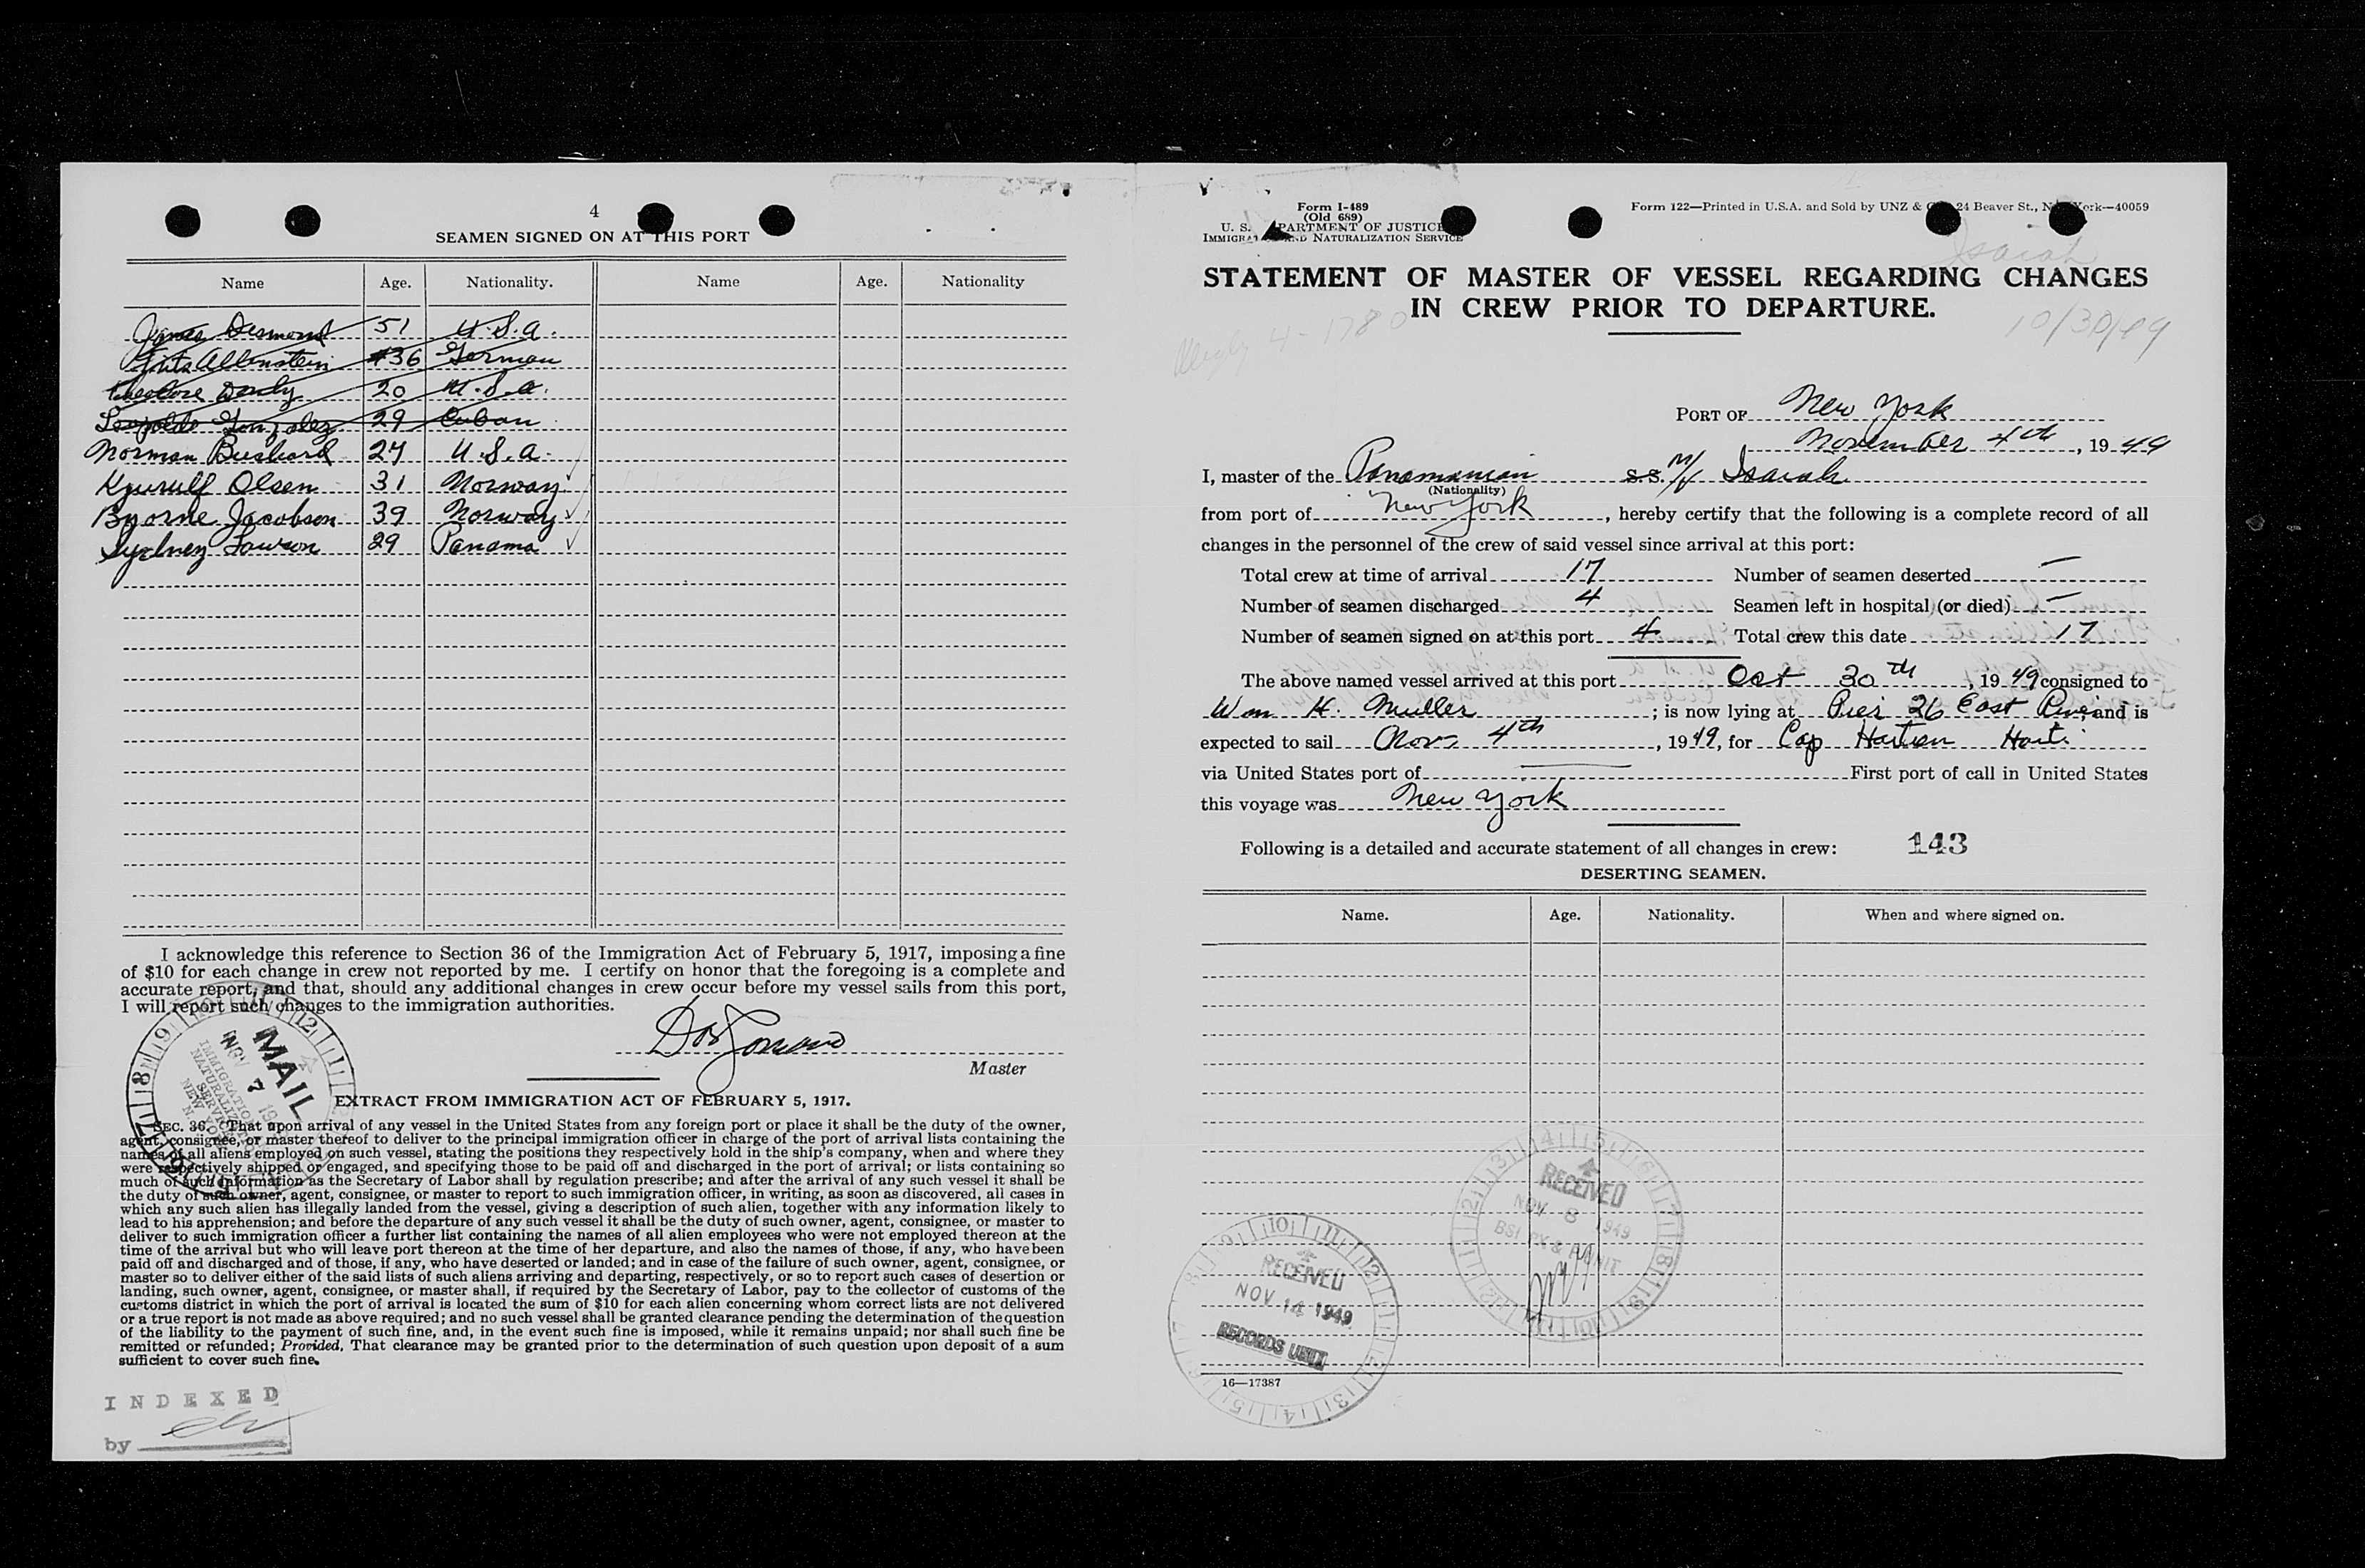 4
SEAMEN SIGNED ON AT THIS PORT
Name Age. Nationality. Name Age. Nationality
James Desmond 51 U.S.A.
Fritz Albenstein 36 German
Theodore 20 U.S.A.
Leopoldo Gonzalez 29 Cuban
Norman Bushard 27 U.S.A.
Kjurulf Olsen 31 Norway
Byorne Jacobson 39 Norway
Sydney Lawson 29 Panama
I acknowledge this reference to Section 36 of the Immigration Act of February 5, 1917, imposing a fine
of $10 for each change in crew not reported by me. I certify on honor that the foregoing is a complete and
accurate report, and that, should any additional changes in crew occur before my vessel sails from this port,
I will report such changes to the immigration authorities.
Master
MAIL
NOV 7 19
IMMIGRATION
NATURALIZ
SERVICE
NEW YORK
EXTRACT FROM IMMIGRATION ACT OF FEBRUARY 5, 1917.
SEC. 36. That upon arrival of any vessel in the United States from any foreign port or place it shall be the duty of the owner,
agent, consignee, or master thereof to deliver to the principal immigration officer in charge of the port of arrival lists containing the
names of all aliens employed on such vessel, stating the positions they respectively hold in the ship's company, when and where they
were respectively shipped or engaged, and specifying those to be paid off and discharged in the port of arrival; or lists containing so
much of such information as the Secretary of Labor shall by regulation prescribe; and after the arrival of any such vessel it shall be
the duty of such owner, agent, consignee, or master to report to such immigration officer, in writing, as soon as discovered, all cases in
which any such alien has illegally landed from the vessel, giving a description of such alien, together with any information likely to
lead to his apprehension; and before the departure of any such vessel it shall be the duty of such owner, agent, consignee, or master to
deliver to such immigration officer a further list containing the names of all alien employees who were not employed thereon at the
time of the arrival but who will leave port thereon at the time of her departure, and also the names of those, if any, who have been
paid off and discharged and of those, if any, who have deserted or landed; and in case of the failure of such owner, agent, consignee, or
master so to deliver either of the said lists of such aliens arriving and departing, respectively, or so to report such cases of desertion or
landing, such owner, agent, consignee, or master shall, if required by the Secretary of Labor, pay to the collector of customs of the
customs district in which the port of arrival is located the sum of $10 for each alien concerning whom correct lists are not delivered
or a true report is not made as above required; and no such vessel shall be granted clearance pending the determination of the question
of the liability to the payment of such fine, and, in the event such fine is imposed, while it remains unpaid; nor shall such fine be
remitted or refunded; Provided, That clearance may be granted prior to the determination of such question upon deposit of a sum
sufficient to cover such fine.
INDEXED
by
Form I-489
(Old 689)
U. S. DEPARTMENT OF JUSTICE
IMMIGRATION AND NATURALIZATION SERVICE
Form 122—Printed in U.S.A. and Sold by UNZ & Co., 24 Beaver St., New York—40059
Isaiah
STATEMENT OF MASTER OF VESSEL REGARDING CHANGES
IN CREW PRIOR TO DEPARTURE.
4-1780
10/30/49
PORT OF New York
November 4th, 1949
I, master of the Panamanian S.S. M/V Isaiah
(Nationality)
from port of New York, hereby certify that the following is a complete record of all
changes in the personnel of the crew of said vessel since arrival at this port:
Total crew at time of arrival 17 Number of seamen deserted —
Number of seamen discharged 4 Seamen left in hospital (or died) —
Number of seamen signed on at this port 4 Total crew this date 17
The above named vessel arrived at this port Oct 30th, 1949 consigned to
Wm H. Muller; is now lying at Pier 26 East River and is
expected to sail Nov. 4th, 1949, for Cap Haitien Haiti
via United States port of — First port of call in United States
this voyage was New York
Following is a detailed and accurate statement of all changes in crew: 143
DESERTING SEAMEN.
Name. Age. Nationality. When and where signed on.
RECEIVED
NOV 8 1949
RECEIVED
NOV 14 1949
RECORDS UNIT
16—17387